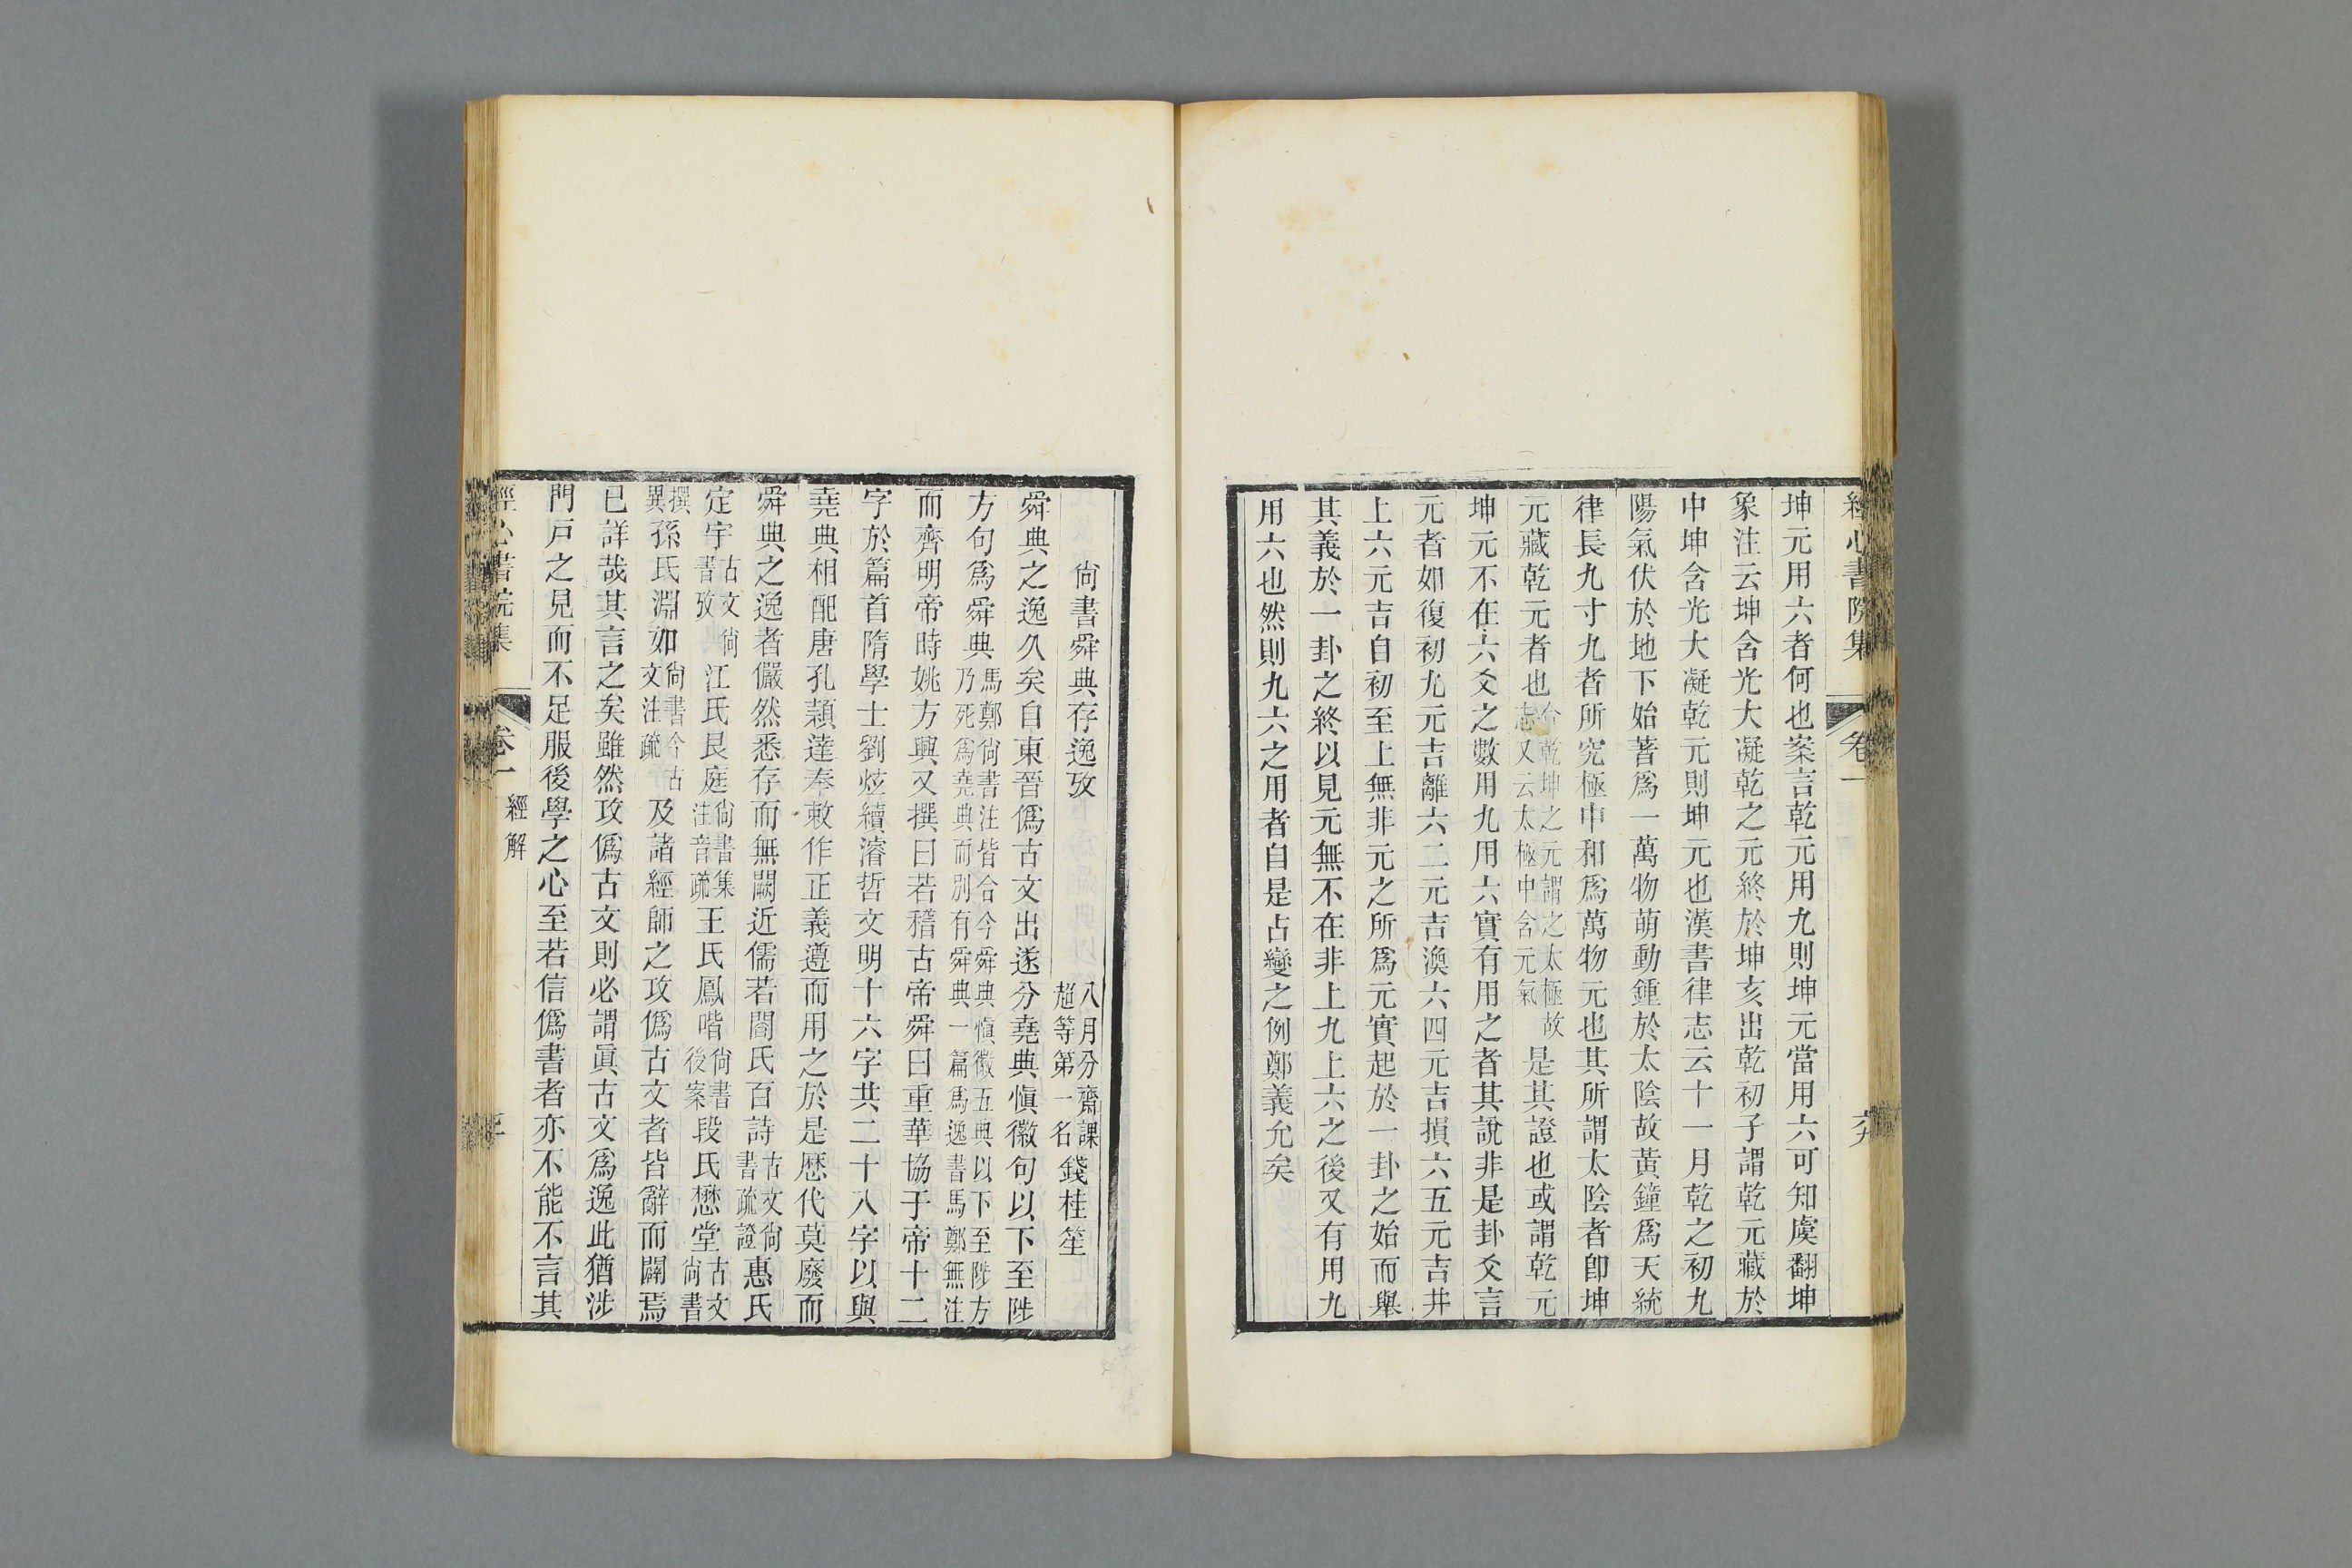 經心書院集
卷一
坤元用六者何也案言乾元用九則坤元當用六可知虞翻坤
彖注云坤含光大凝乾之元終於坤亥出乾初子謂乾元藏於
中坤含光大凝乾元則坤元也漢書律志云十一月乾之初九
陽氣伏於地下始著爲一萬物萌動鍾於太陰故黃鐘爲天統
律長九寸九者所究極中和爲萬物元也其所謂太陰者卽坤
元藏乾元者也合乾坤之元謂之太極故志又云太極中含元氣是其證也或謂乾元
坤元不在六爻之數用九用六實有用之者其說非是卦爻言
元者如復初九元吉離六二元吉渙六四元吉損六五元吉井
上六元吉自初至上無非元之所爲元實起於一卦之始而舉
其義於一卦之終以見元無不在非上九上六之後又有用九
用六也然則九六之用者自是占變之例鄭義允矣
尙書舜典存逸攷
八月分齋課
超等第一名
錢桂笙
舜典之逸久矣自東晉僞古文出遂分堯典愼徽句以下至陟
方句爲舜典馬鄭尙書注皆合今舜典愼徽五典以下至陟方乃死爲堯典而別有舜典一篇爲逸書馬鄭無注
而齊明帝時姚方興又撰曰若稽古帝舜曰重華協于帝十二
字於篇首隋學士劉炫續濬哲文明十六字共二十八字以與
堯典相配唐孔穎達奉敕作正義遵而用之於是歷代莫廢而
舜典之逸者儼然悉存而無闕近儒若閻氏百詩古文尙書疏證惠氏
定宇古文尙書攷江氏艮庭尙書集注音疏王氏鳳喈尙書後案段氏懋堂古文尙書
撰異孫氏淵如尙書今古文注疏及諸經師之攻僞古文者皆辭而闢焉
已詳哉其言之矣雖然攻僞古文則必謂眞古文爲逸此猶涉
門戶之見而不足服後學之心至若信僞書者亦不能不言其
經心書院集
卷一
經解